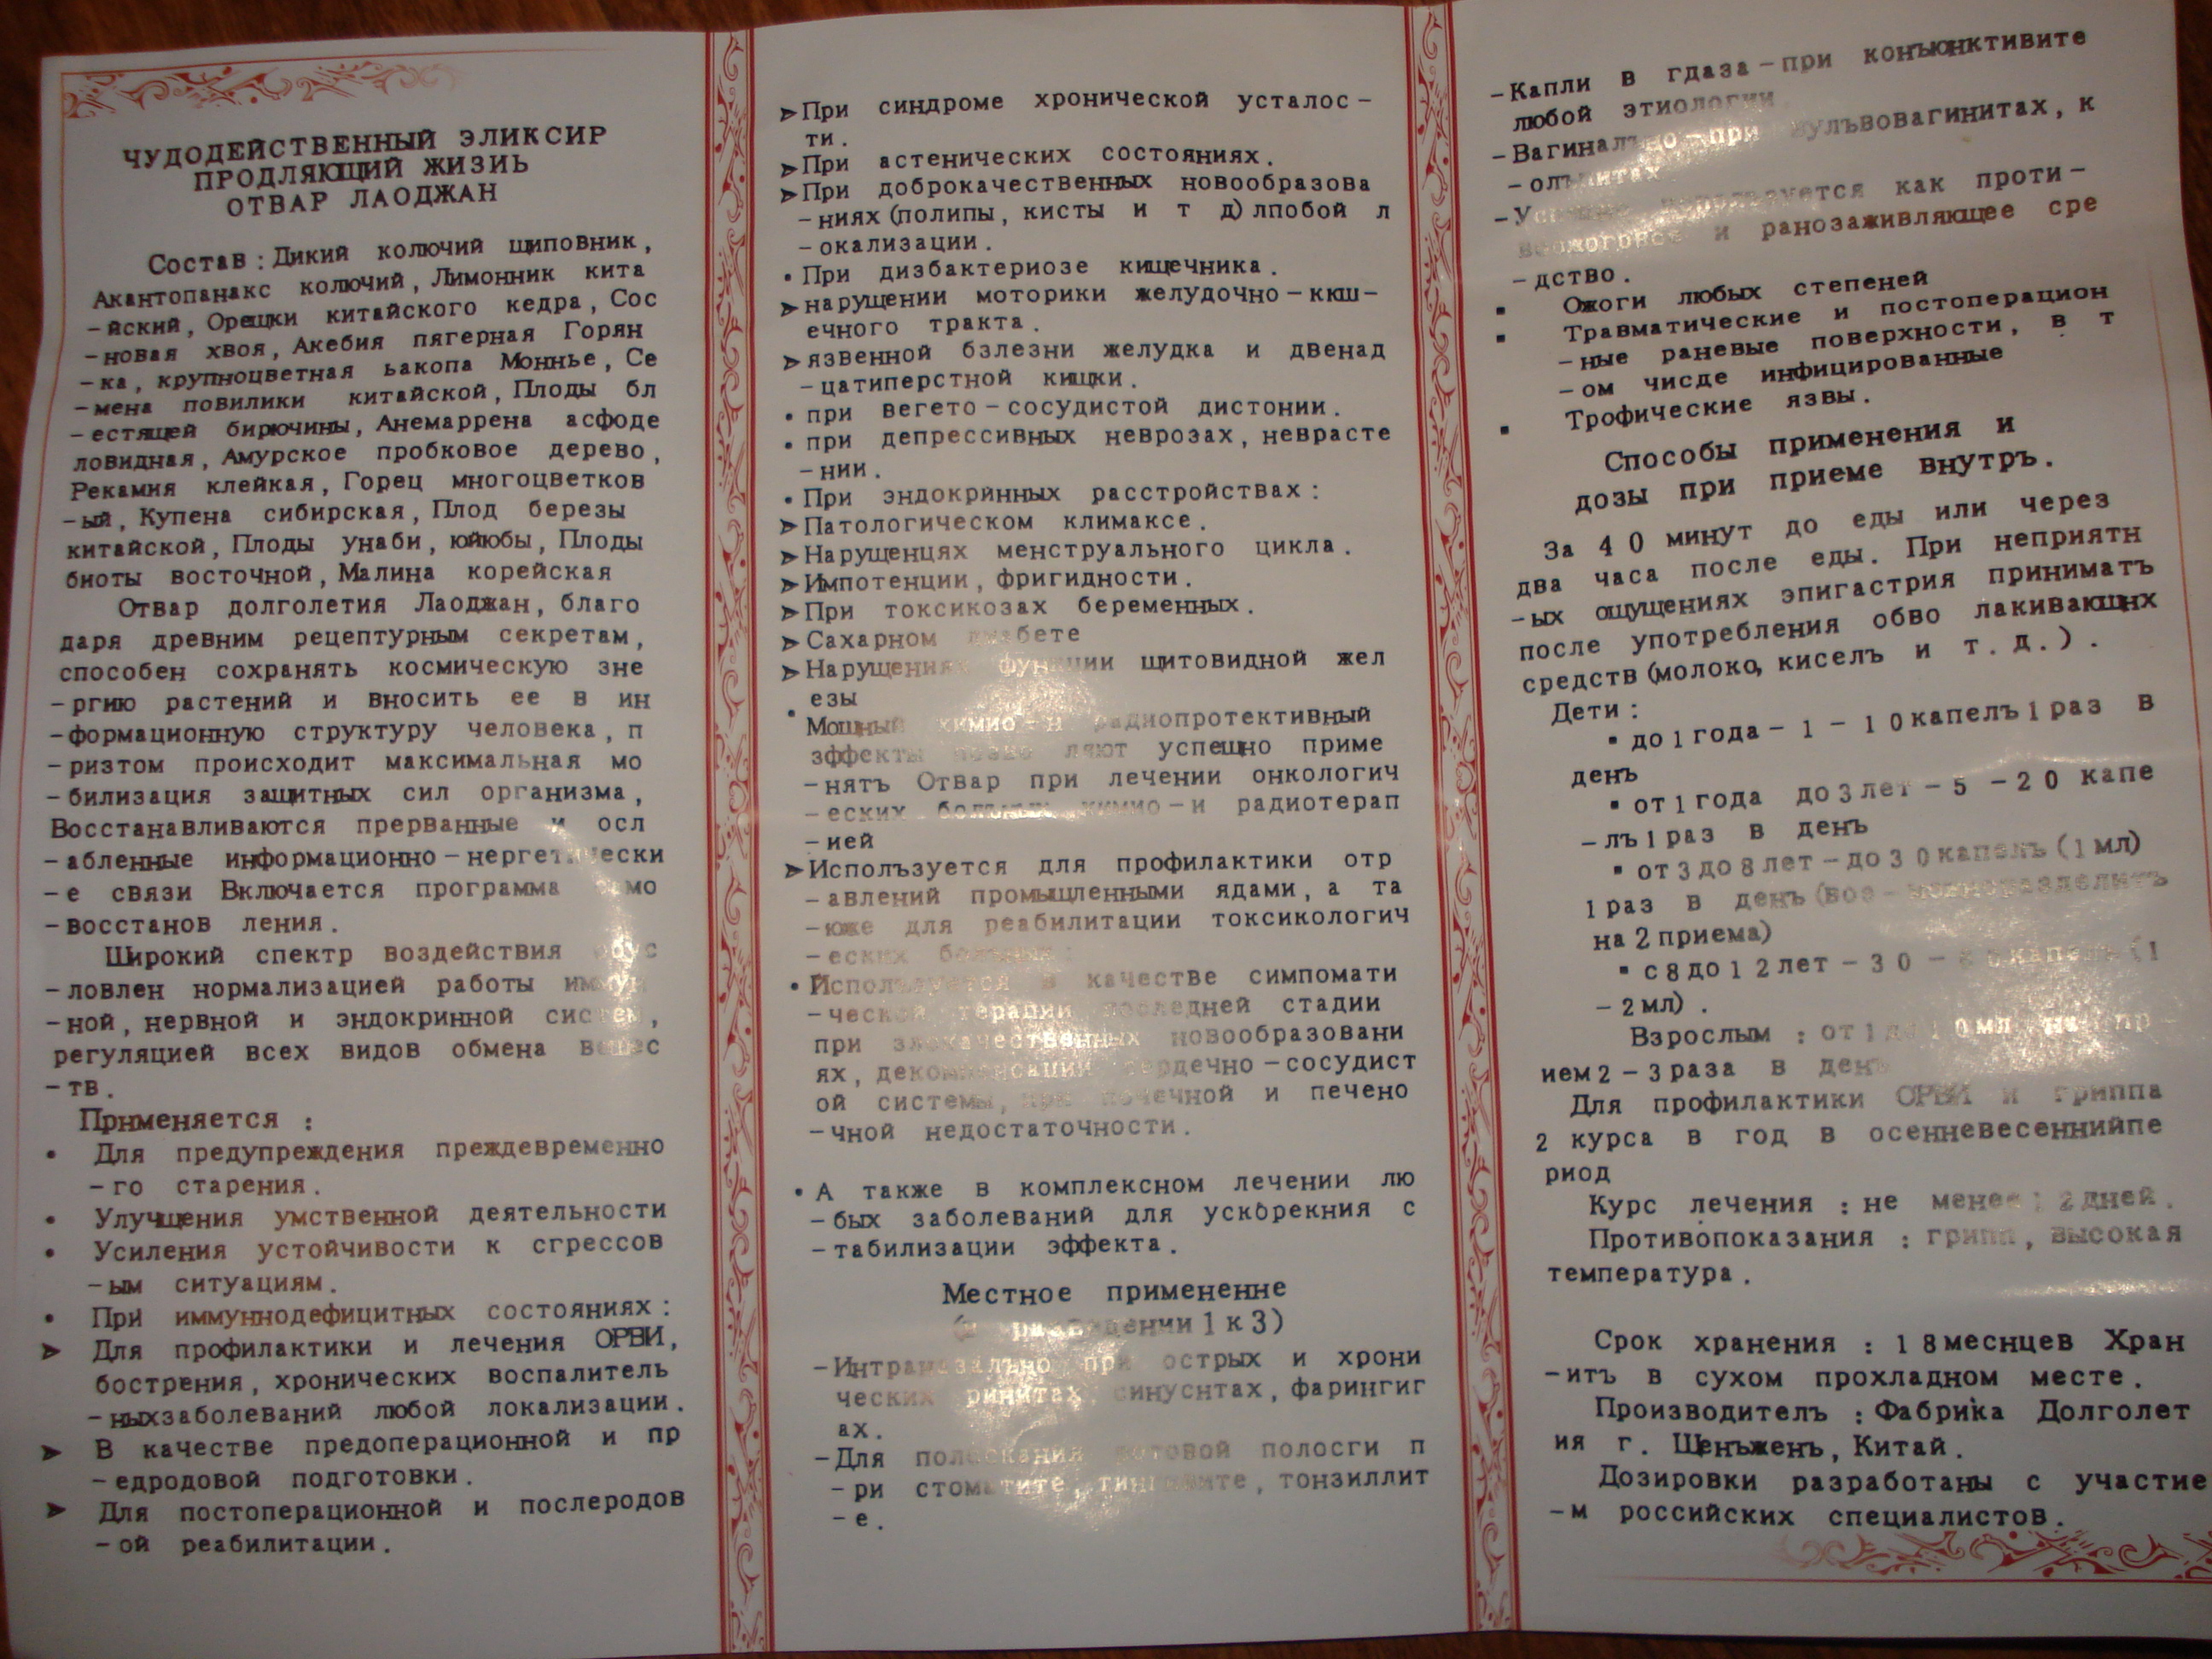 ЧУДОДЕЙСТВЕННЫЙ ЭЛИКСИР
ПРОДЛЯЮЩИЙ ЖИЗНЬ
ОТВАР ЛАОДЖАН
Состав : Дикий колючий шиповник ,
Акантопанакс колючий , Лимонник кита
-йский , Орешки китайского кедра , Сос
-новая хвоя , Акебия пягерная Горян
-ка , крупноцветная ьакопа Моннье , Се
-мена повилики китайской , Плоды бл
-естящей бирючины , Анемаррена асфоде
ловидная , Амурское пробковое дерево ,
Рекамия клейкая , Горец многоцветков
-ый , Купена сибирская , Плод березы
китайской , Плоды унаби , юйюбы , Плоды
биоты восточной , Малина корейская
Отвар долголетия Лаоджан , благо
даря древним рецептурным секретам ,
способен сохранять космическую зне
-ргию растений и вносить ее в ин
-формационную структуру человека , п
-ризтом происходит максимальная мо
-билизация защитных сил организма ,
Восстанавливаются прерванные и осл
-абленные информационно-нергетически
-е связи Включается программа само
-восстанов ления .
Широкий спектр воздействия обус
-ловлен нормализацией работы иммун
-ной , нервной и эндокринной систем ,
регуляцией всех видов обмена вещес
-тв .
Прнменяется :
• Для предупреждения преждевременно
-го старения .
• Улучшения умственной деятельности
• Усиления устойчивости к сгрессов
-ым ситуациям .
• При иммуннодефицитных состояниях :
➤ Для профилактики и лечения ОРВИ ,
бострения , хронических воспалитель
-ныхзаболеваний любой локализации .
➤ В качестве предоперационной и пр
-едродовой подготовки .
➤ Для постоперационной и послеродов
-ой реабилитации .
➤При синдроме хронической усталос-
ти .
➤При астенических состояниях .
➤При доброкачественных новообразова
-ниях (полипы , кисты и т д) лпобой л
-окализации .
•При дизбактериозе кищечника .
➤нарущении моторики желудочно-ккш-
ечного тракта .
➤язвенной бзлезни желудка и двенад
-цатиперстной кищки .
•при вегето-сосудистой дистонии .
•при депрессивных неврозах , неврасте
-нии .
•При эндокринных расстройствах :
➤Патологическом климаксе .
➤Нарущенцях менструального цикла .
➤Импотенции , фригидности .
➤При токсикозах беременных .
➤Сахарном диабете
➤Нарущениях функции щитовидной жел
езы
•Мощный химио-н радиопротективный
зффекты ляют успещно приме
-нятъ Отвар при лечении онкологич
-еских химио-и радиотерап
-ией
➤Исполъзуется для профилактики отр
-авлений промыщленными ядами , а та
-юже для реабилитации токсикологич
-еских
•Исполъзуется в качестве симпомати
-ческой терапии последней стадии
при злокачественных новообразовани
ях , декомпенсации сердечно-сосудист
ой системы , при почечной и печено
-чной недостаточности .
•А также в комплексном лечении лю
-бых заболеваний для ускорекния с
-табилизации эффекта .
Местное примененне
1 к 3)
-Интраназалъно при острых и хрони
ческих ринитах синуснтах , фарингиг
ах .
-Для полоскания ротовой полосги п
-ри стоматите , , тонзиллит
-е .
-Капли в гдаза-при конъюнктивите
любой этиологии
-Вагиналъно-при вулъвовагинитах , к
-олъпитах
-Успешно как проти-
и ранозаживляющее сре
-дство .
▪ Ожоги любых степеней
▪ Травматические и постоперацион
-ные раневые поверхности , в т
-ом чисде инфицированные
▪ Трофические язвы .
Способы применения и
дозы при приеме внутръ .
За 40 минут до еды или через
два часа после еды . При неприятн
-ых ощущениях эпигастрия приниматъ
после употребления обво лакивающнх
средств (молоко, киселъ и т . д . ) .
Дети :
▪ до 1 года - 1 - 10 капелъ 1 раз в
денъ
▪ от 1 года до 3 лет - 5 - 20 капе
-лъ 1 раз в денъ
▪ от 3 до 8 лет - до 30 капелъ (1 мл)
1 раз в денъ
на 2 приема)
▪ с 8 до 12 лет - 30 - капелъ (1
-2 мл) .
Взрослым : от 1 до 10 мл на пр-
ием 2-3 раза в денъ
Для профилактики ОРВИ и гриппа
2 курса в год в осенневесеннийпе
риод
Курс лечения : не менее 2 дней .
Противопоказания : грипп , высокая
температура .
Срок хранения : 18 меснцев Хран
-итъ в сухом прохладном месте .
Производителъ : Фабрика Долголет
ия г . Шенъженъ , Китай .
Дозировки разработаны с участие
-м российских специалистов .